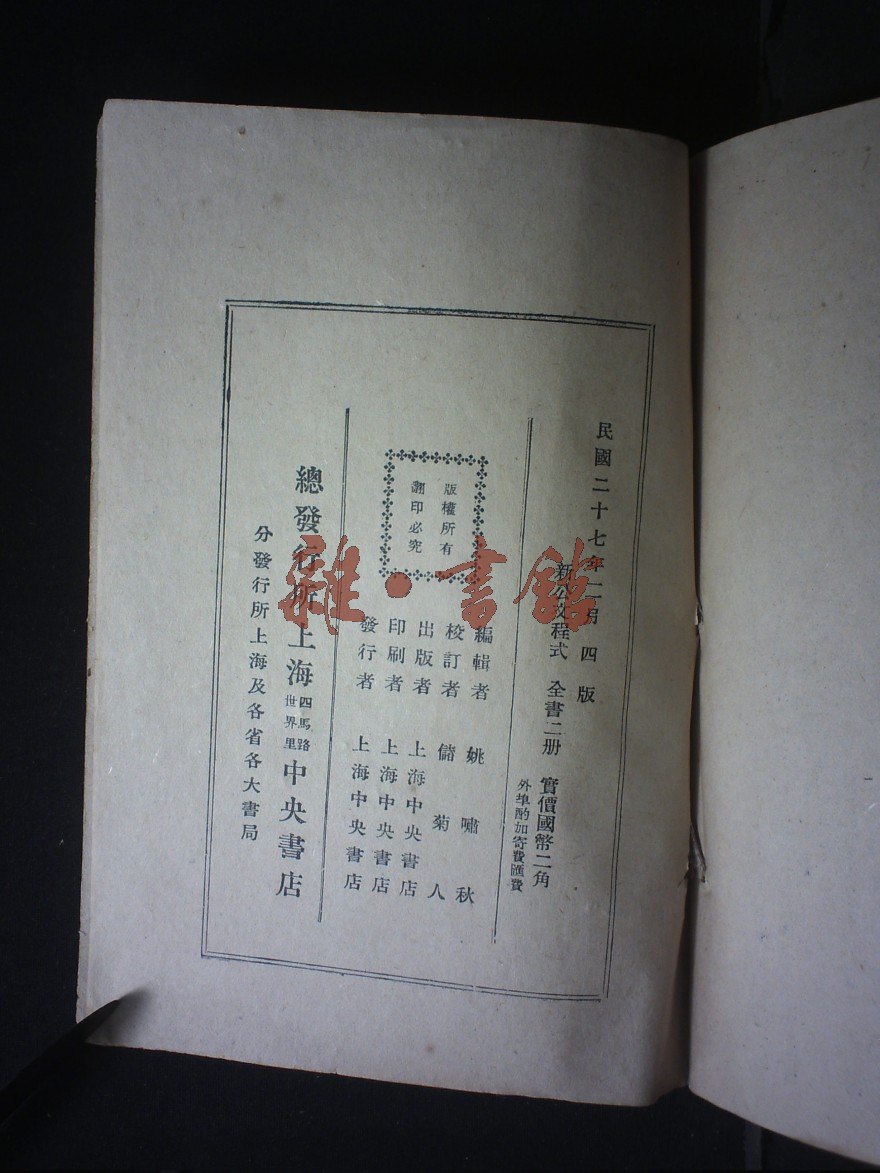 民國二十七年二月四版
新公文程式 全書二册 實價國幣二角
外埠酌加寄費匯費
版權所有
翻印必究
編輯者 姚嘯秋
校訂者 儲菊人
出版者 上海中央書店
印刷者 上海中央書店
發行者 上海中央書店
總發行所上海四馬路世界里中央書店
分發行所上海及各省各大書局
雜·書館